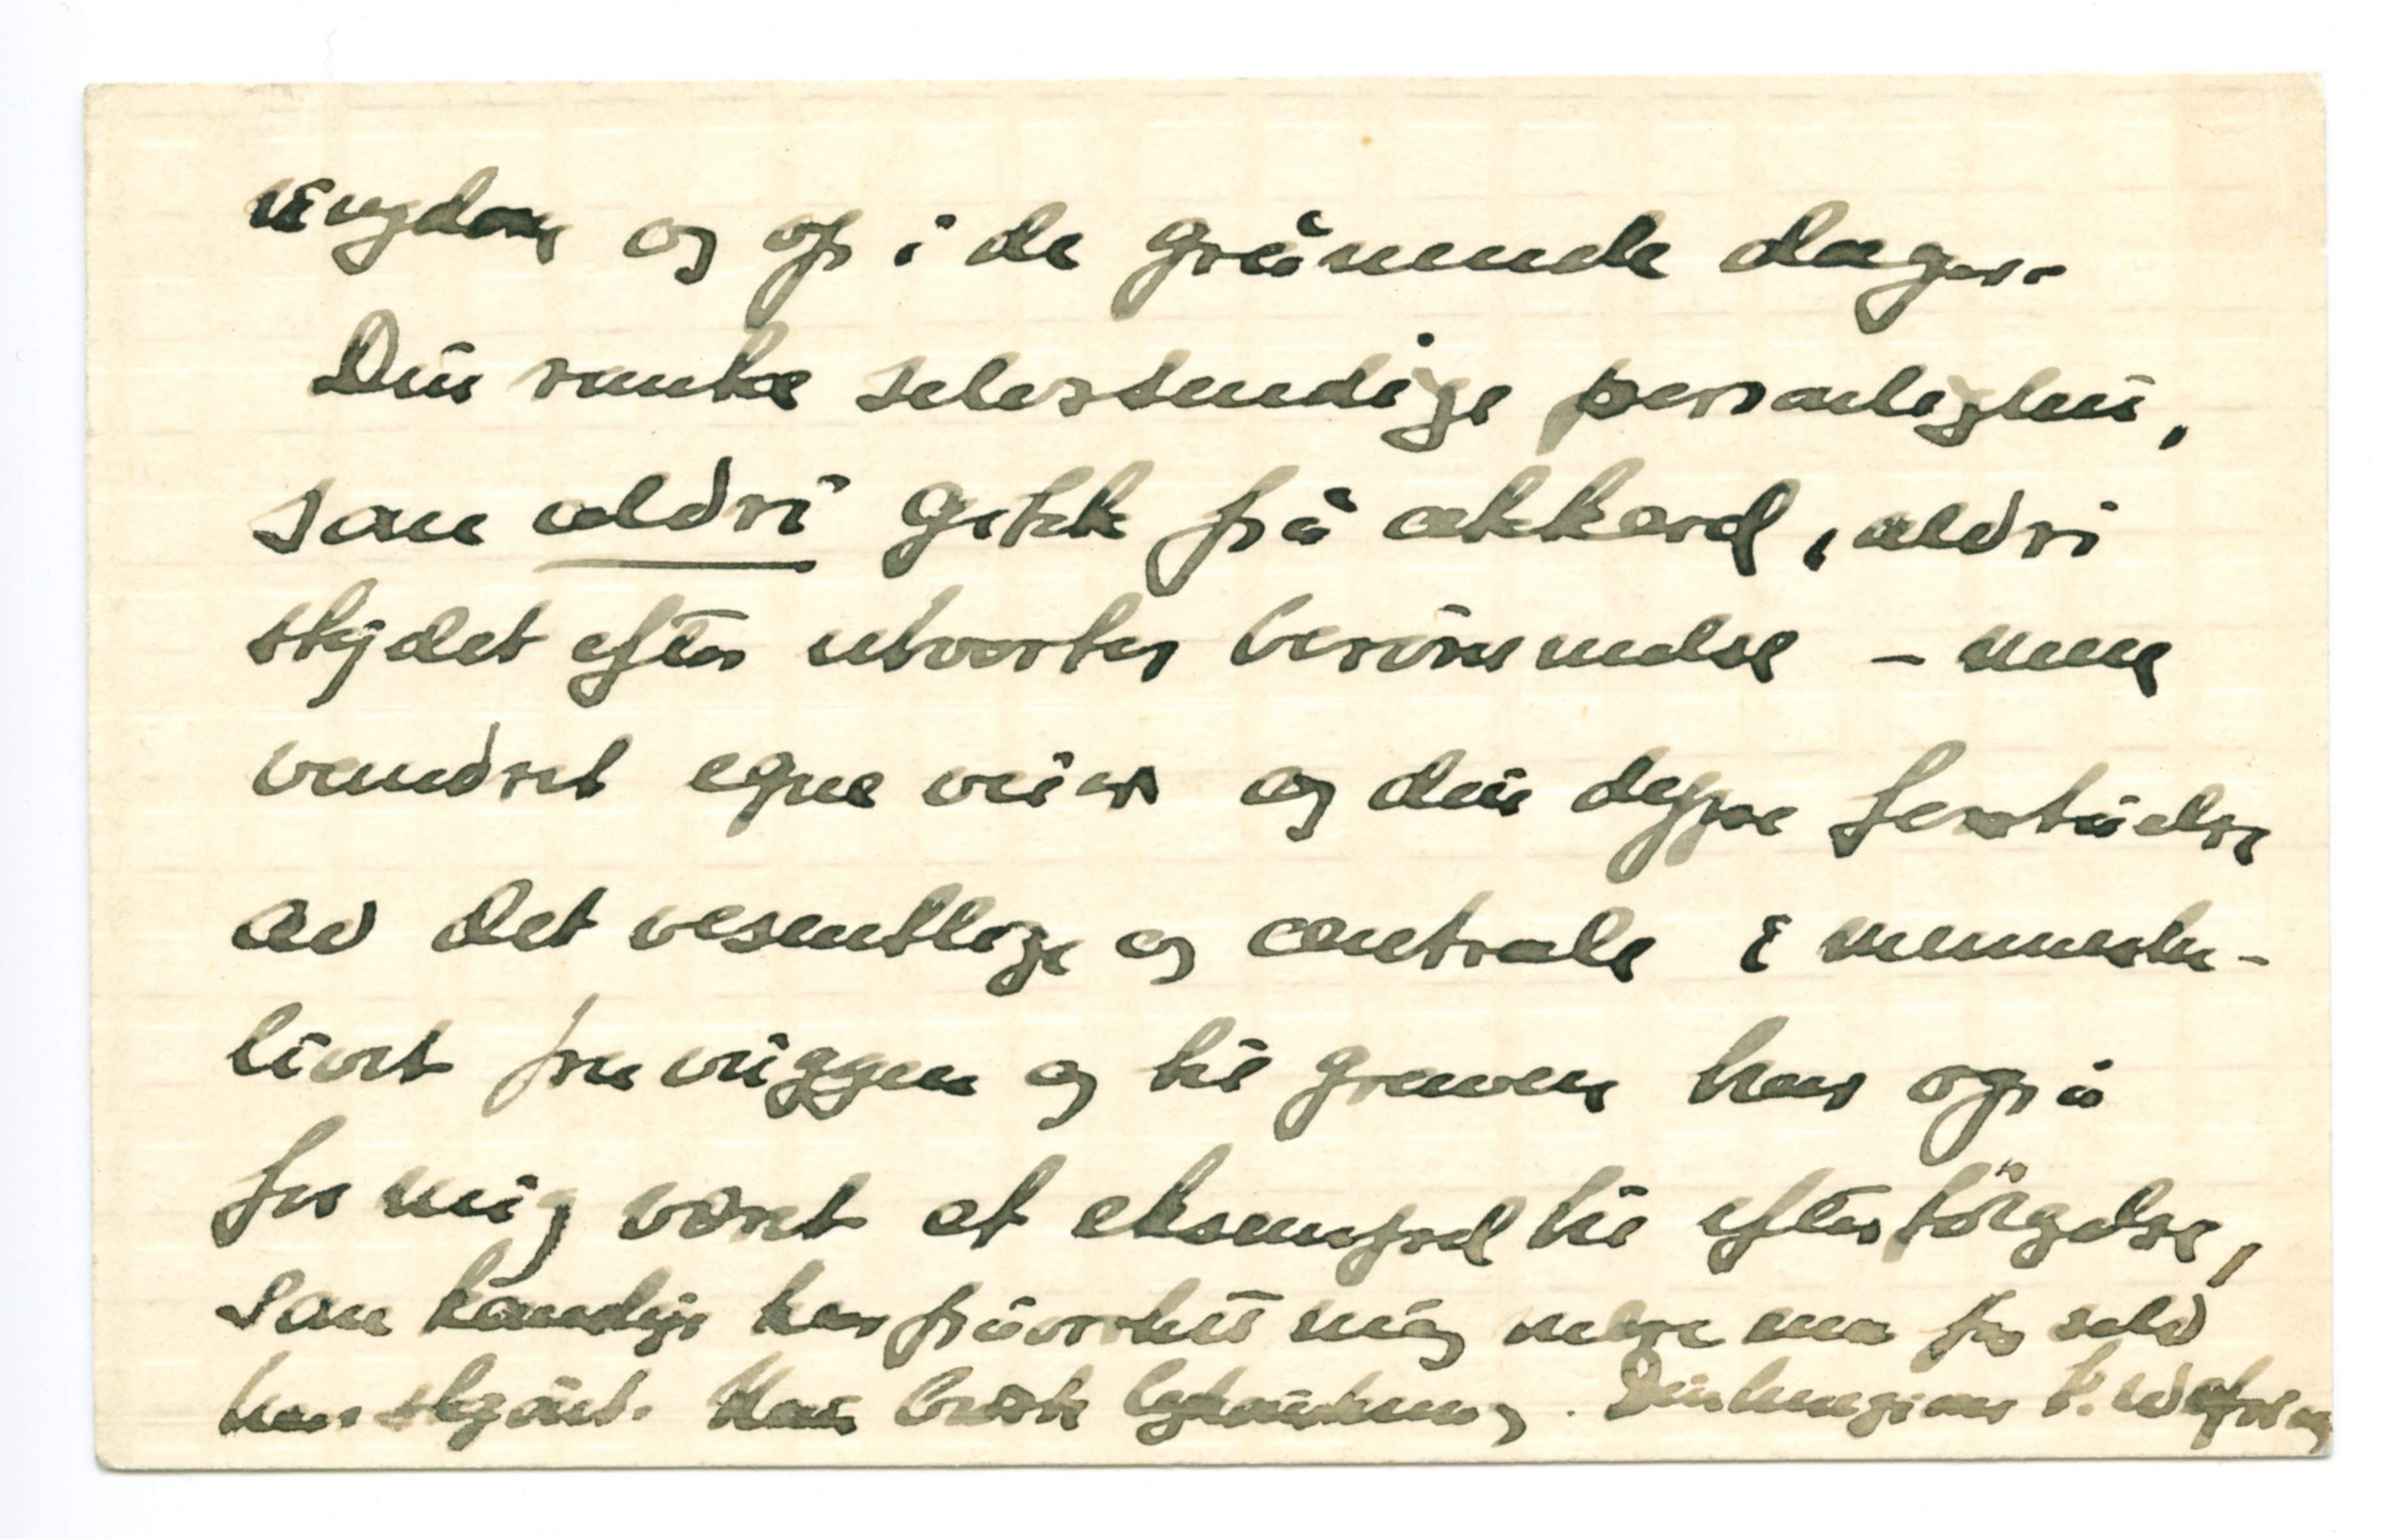 ungdom og op i de grånende dager.
Din ranke selvstendige personlighet,
som aldri gikk på akkord, aldri
skjelet efter utvortes berömmelse – men
vandret egne veier og din dype forståelse
av det vesentlige og centrale i menneske-
livet fra vuggen og til graven har også
for mig været et eksempel til efterfölgelse,
som kanskje har påvirket mig mere enn jeg selv
har skjönt. Min beste lykönskning. Din hengivne